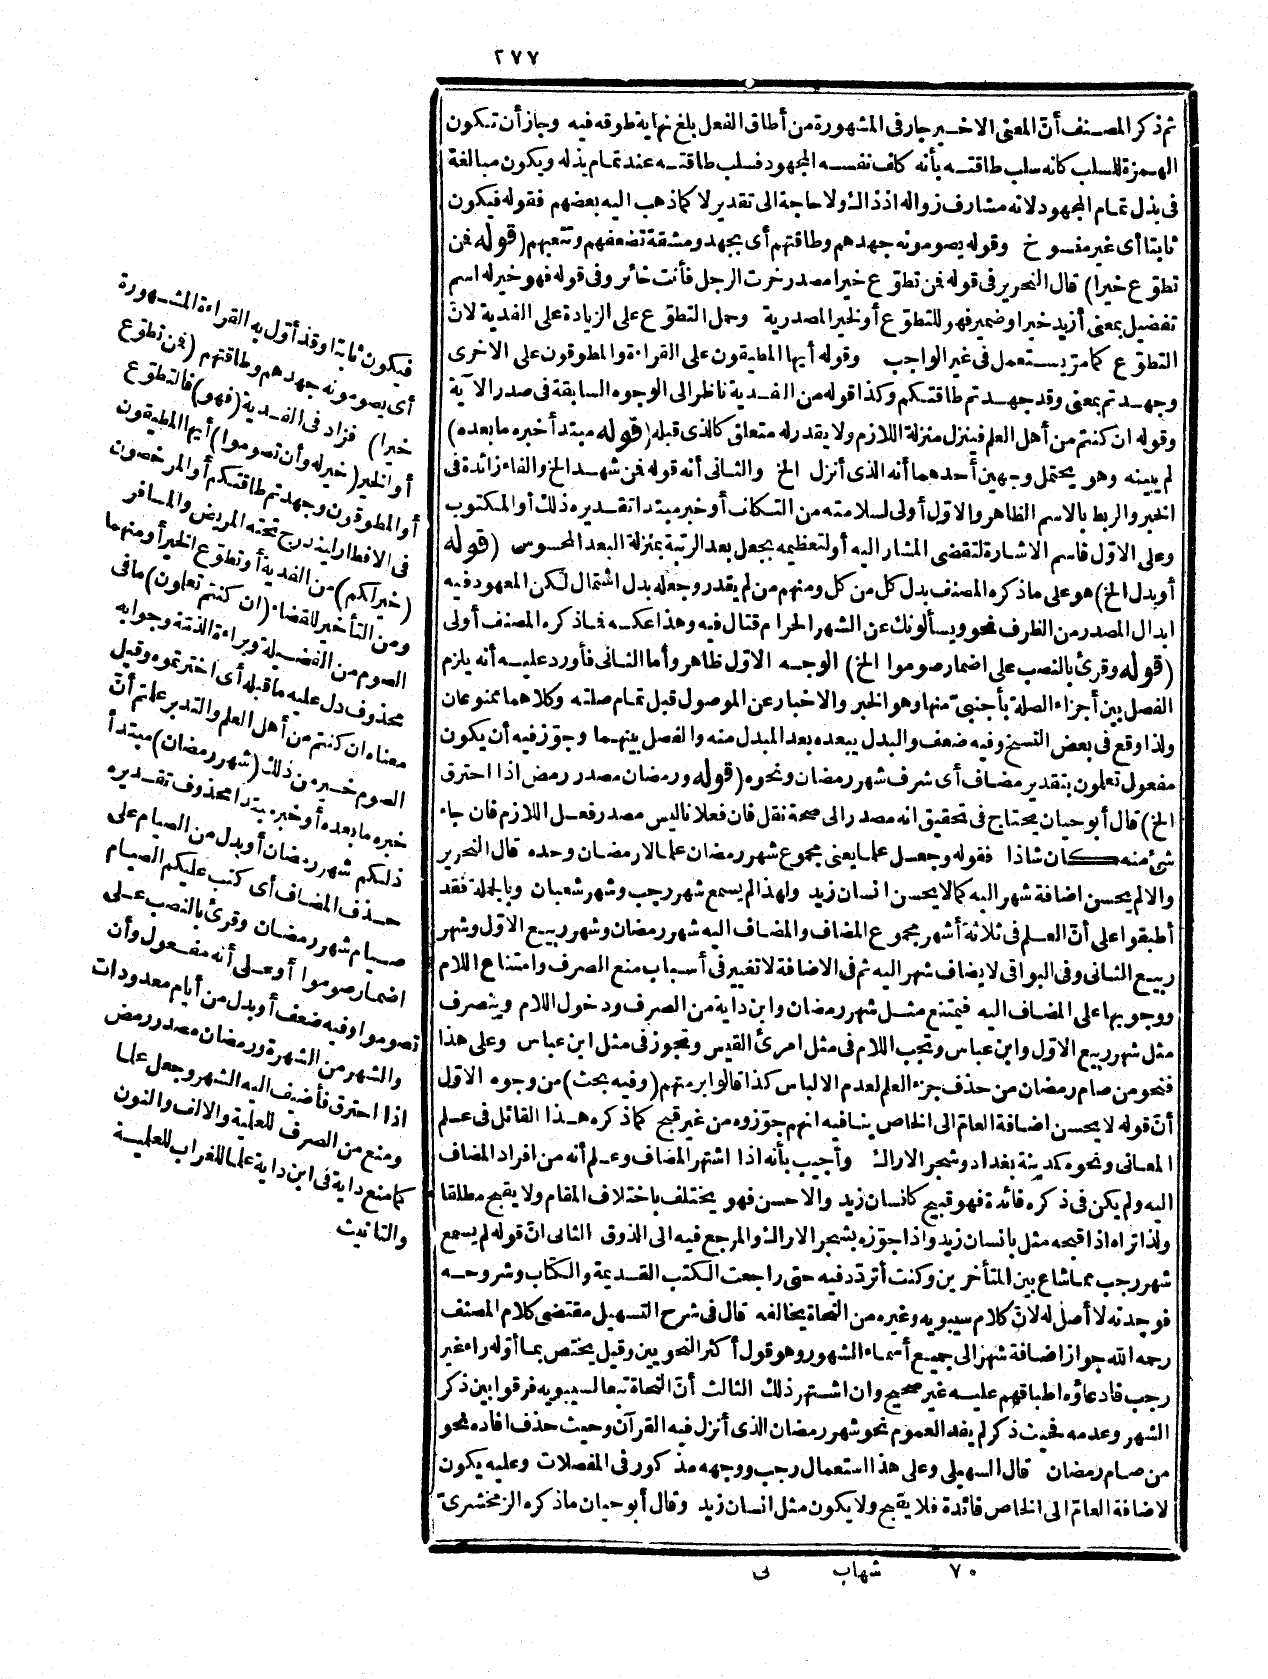 ٢٧٧
ثم ذكر المصنف أنّ المعنى الاخير جار فى المشهورة من أطاق الفعل بلغ نهاية طوقه فيه وجاز أن تكون
الهمزة للسلب كانه سلب طاقته بأنه كلف نفسه المجهود فسلب طاقته عند تمام بذله ويكون مبالغة
فى بذل تمام المجهود لانه مشارف زواله اذ ذاك ولا حاجة الى تقدير لا كما ذهب اليه بعضهم فقوله فيكون
ثابتا أى غير منسوخ وقوله يصومونه جهدهم وطاقتهم أى بجهد ومشقة تضعفهم وتتعبهم (قوله فمن
تطوّع خيرا) قال النحرير فى قوله فمن تطوّع خيرا مصدر خرت الرجل فأنت خائر وفى قوله فهو خير له اسم
تفضيل بمعنى أزيد خيرا وضمير فهو للتطوّع أو لخير المصدرية وحمل التطوّع على الزيادة على الفدية لانّ
التطوّع كما مرّ يستعمل فى غير الواجب وقوله أيها المطيقون على القراءة والمطوقون على الاخرى
وجهدتم بمعنى وقد جهدتم طاقتكم وكذا قوله من الفدية ناظر الى الوجوه السابقة فى صدر الآية
وقوله ان كنتم من أهل العلم فينزل منزلة اللازم ولا يقدر له متعلق كالذى قبله (قوله مبتدأ خبره ما بعده)
لم يبينه وهو يحتمل وجهين أحدهما أنه الذى أنزل الخ والثانى أنه قوله فمن شهد الخ والفاء زائدة فى
الخبر والربط بالاسم الظاهر والاول أولى لسلامته من التكلف أو خبر مبتدا تقديره ذلك أو المكتوب
وعلى الاوّل فاسم الاشارة لتقضى المشار اليه أو لتعظيمه بجعل بعد الرتبة بمنزلة البعد المحسوس (قوله
أو بدل الخ) هو على ما ذكره المصنف بدل كل من كل ومنهم من لم يقدر وجعله بدل اشتمال لكن المعهود فيه
ابدال المصدر من الظرف نحو ويسألونك عن الشهر الحرام قتال فيه وهذا عكسه فما ذكره المصنف أولى
(قوله وقرئ بالنصب على اضمار صوموا الخ) الوجه الاوّل ظاهر وأما الثانى فأورد عليه أنه يلزم
الفصل بين أجزاء الصلة بأجنبىّ منها وهو الخبر والاخبار عن الموصول قبل تمام صلته وكلاهما ممنوعان
ولذا وقع فى بعض النسخ وفيه ضعف والبدل يبعده بعد المبدل منه والفصل بينهما وجوّز فيه أن يكون
مفعول تعلمون بتقدير مضاف أى شرف شهر رمضان ونحوه (قوله ورمضان مصدر رمض اذا احترق
الخ) قال أبو حيان يحتاج فى تحقيق انه مصدر الى صحة نقل فان فعلانا ليس مصدر فعل اللازم فان جاء
شئ منه كان شاذا فقوله وجعل علما يعنى مجموع شهر رمضان علما لا رمضان وحده قال النحرير
والا لم يحسن اضافة شهر اليه كما لا يحسن انسان زيد ولهذا لم يسمع شهر رجب وشهر شعبان وبالجملة فقد
أطبقوا على أنّ العلم فى ثلاثة أشهر مجموع المضاف والمضاف اليه شهر رمضان وشهر ربيع الاوّل وشهر
ربيع الثانى وفى البواقى لا يضاف شهر اليه ثم فى الاضافة لا تغيير فى أسباب منع الصرف وامتناع اللام
ووجوبها على المضاف اليه فيمتنع مثل شهر رمضان وابن داية من الصرف ودخول اللام وينصرف
مثل شهر ربيع الاوّل وابن عباس وتجب اللام فى مثل امرئ القيس وتجوز فى مثل ابن عباس وعلى هذا
فنحو من صام رمضان من حذف جزء العلم لعدم الالباس كذا قالوا برمتهم (وفيه بحث) من وجوه الاول
أنّ قوله لا يحسن اضافة العام الى الخاص ينافيه انهم جوّزوه من غير قبح كما ذكره هذا القائل فى علم
المعانى ونحوه كمدينة بغداد وشجر الاراك وأجيب بأنه اذا اشتهر المضاف وعلم أنه من افراد المضاف
اليه ولم يكن فى ذكره فائدة فهو قبيح كانسان زيد والا حسن فهو يختلف باختلاف المقام ولا يقبح مطلقا
ولذا تراه اذا قبحه مثل بانسان زيد واذا جوّزه بشجر الاراك والمرجع فيه الى الذوق الثانى انّ قوله لم يسمع
شهر رجب مما شاع بين المتأخرين وكنت أتردّد فيه حتى راجعت الكتب القديمة والكتاب وشروحه
فوجدته لا أصل له لانّ كلام سيبويه وغيره من النحاة يخالفه قال فى شرح التسهيل مقتضى كلام المصنف
رحمه الله جواز اضافة شهر الى جميع أسماء الشهور وهو قول أكثر النحويين وقيل يختص بما أوّله راء غير
رجب فادعاؤه اطباقهم عليه غير صحيح وان اشتهر ذلك الثالث أنّ النحاة تبعا لسيبويه فرقوا بين ذكر
الشهر وعدمه فحيث ذكر لم يفد العموم نحو شهر رمضان الذى أنزل فيه القرآن وحيث حذف افاده نحو
من صام رمضان قال السهيلى وعلى هذا استعمال رجب ووجهه مذكور فى المفصلات وعليه يكون
لاضافة العام الى الخاص فائدة فلا يقبح ولا يكون مثل انسان زيد وقال أبو حيان ما ذكره الزمخشرىّ
٧٠ شهاب نى
فيكون ثابتا وقد أوّل به القراءة المشهورة
أى يصومونه جهدهم وطاقتهم (فمن تطوّع
خيرا) فزاد فى الفدية (فهو) فالتطوّع
أو الخير (خير له وأن تصوموا) أيها المطيقون
أو المطوقون وجهدتم طاقتكم أو المرخصون
فى الافطار ليندرج تحته المريض والمسافر
(خير لكم) من الفدية أو تطوّع الخير أو منهما
ومن التأخير للقضاء (ان كنتم تعلمون) ما فى
الصوم من الفضيلة وبراءة الذمّة وجوابه
محذوف دل عليه ما قبله أى اخترتموه وقيل
معناه ان كنتم من أهل العلم والتدبر علمتم أنّ
الصوم خير من ذلك (شهر رمضان) مبتدأ
خبره ما بعده أو خبر مبتدا محذوف تقديره
ذلكم شهر رمضان أو بدل من الصيام على
حذف المضاف أى كتب عليكم الصيام
صيام شهر رمضان وقرئ بالنصب على
اضمار صوموا أو على أنه مفعول وأن
تصوموا وفيه ضعف أو بدل من أيام معدودات
والشهر من الشهرة ورمضان مصدر رمض
اذا احترق فأضيف اليه الشهر وجعل علما
ومنع من الصرف للعلمية والالف والنون
كما منع داية فى ابن داية علما للغراب للعلمية
والتأنيث